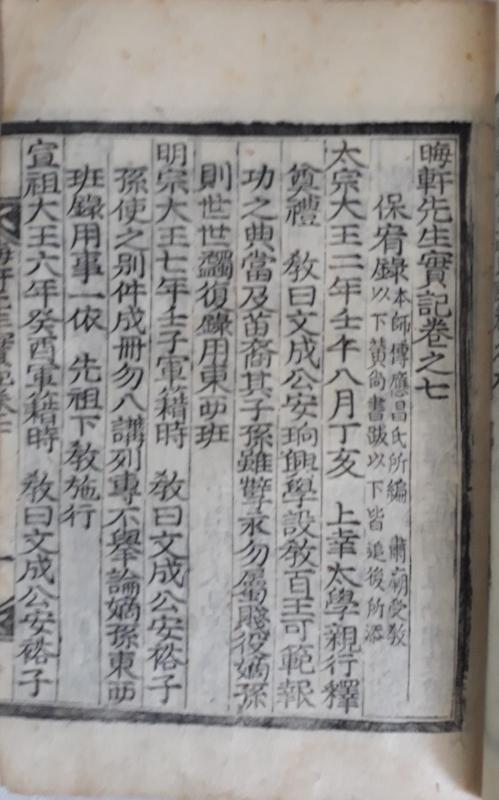 晦軒先生實記卷之七
保宥錄
本師傅應昌氏所編 肅廟受敎
以下黃尙書跋以下皆追後所添
太宗大王二年壬午八月丁亥 上幸太學親行釋
奠禮 敎曰文成公安珦興學設敎百王可範報
功之典當及苗裔其子孫雖孽永勿屬賤役嫡孫
則世世蠲復錄用東西班
明宗大王七年壬子軍籍時 敎曰文成公安裕子
孫使之別件成冊勿入講列專不擧論嫡孫東西
班錄用事一依 先祖下敎施行
宣祖大王六年癸酉軍籍時 敎曰文成公安裕子